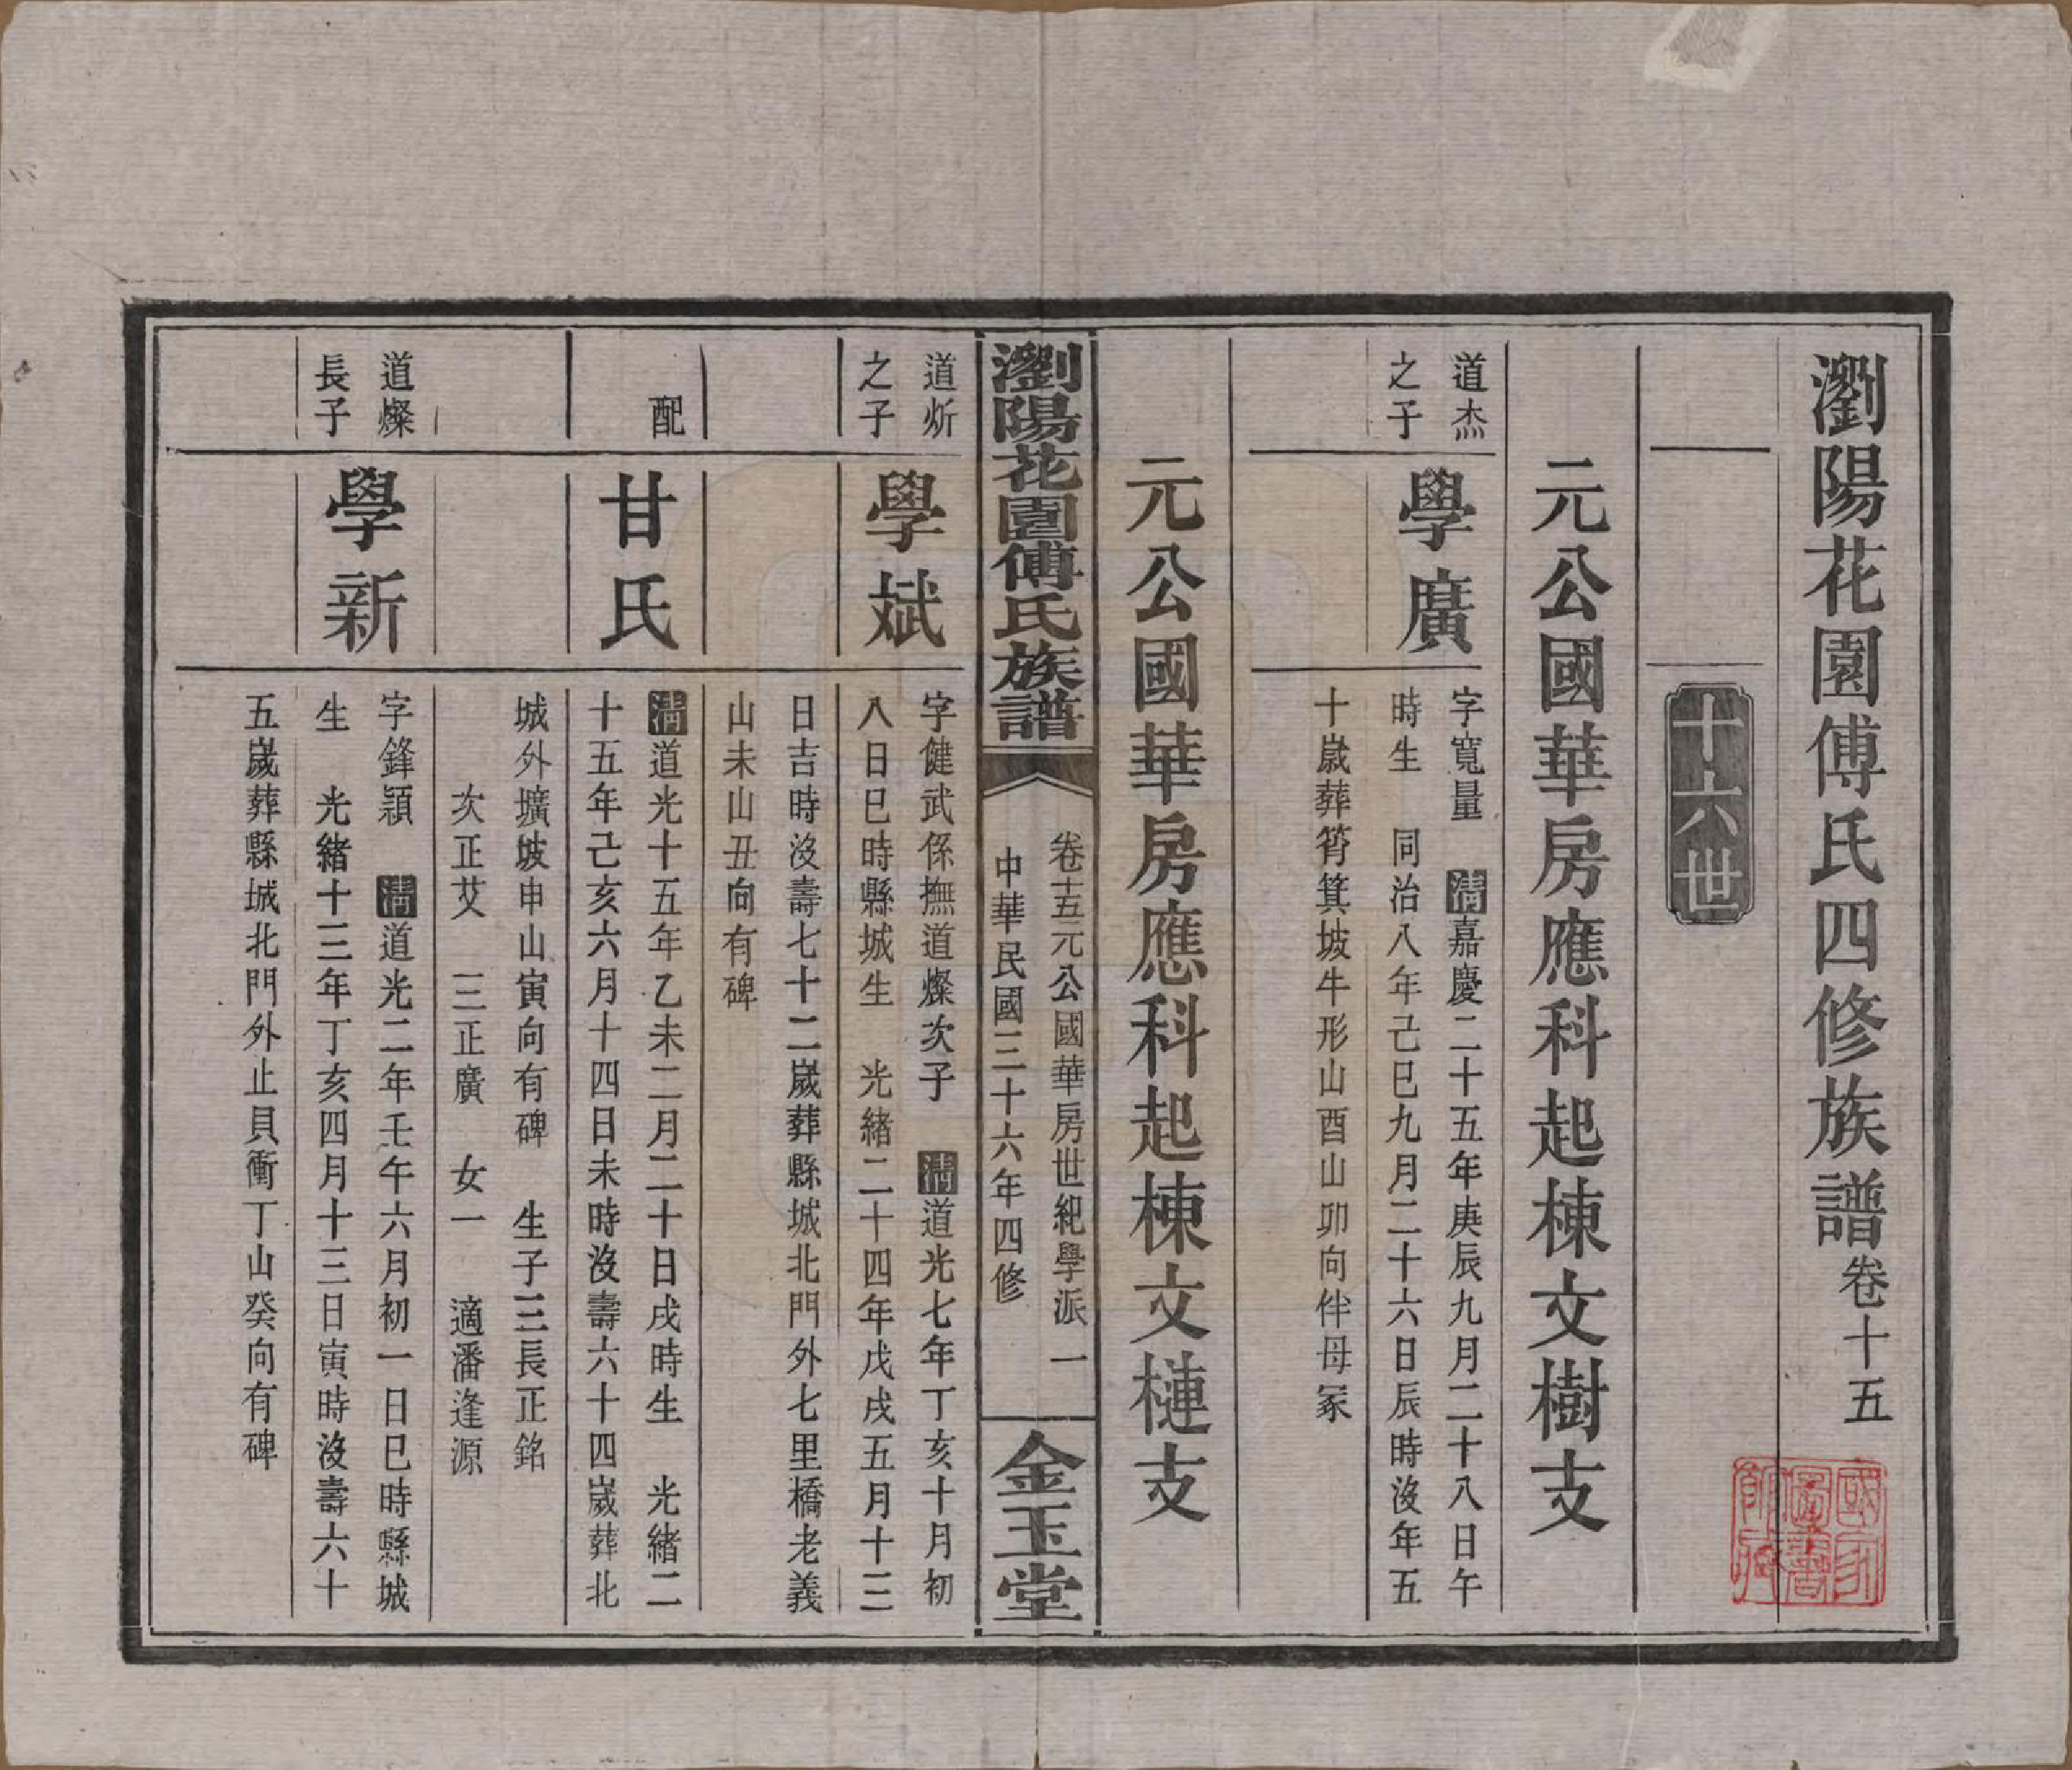 瀏陽花園傅氏四修族譜卷十五
十六世
元公國華房應科起棟文樹支
道杰
之子
學廣
字寬量　清嘉慶二十五年庚辰九月二十八日午
時生　同治八年己巳九月二十六日辰時沒年五
十歲葬筲箕坡牛形山酉山卯向伴母冢
元公國華房應科起棟文槤支
瀏陽花園傅氏族譜
卷十五元公國華房世紀學派　一
中華民國三十六年四修
金玉堂
道炘
之子
學斌
字健武係撫道燦次子　清道光七年丁亥十月初
八日巳時縣城生　光緒二十四年戊戌五月十三
日吉時沒壽七十二歲葬縣城北門外七里橋老義
山未山丑向有碑
配
甘氏
清道光十五年乙未二月二十日戌時生　光緒二
十五年己亥六月十四日未時沒壽六十四歲葬北
城外壙坡申山寅向有碑　生子三長正銘
次正艾　三正廣　女一　適潘逢源
道燦
長子
學新
字鋒穎　清道光二年壬午六月初一日巳時縣城
生　光緒十三年丁亥四月十三日寅時沒壽六十
五歲葬縣城北門外止貝衝丁山癸向有碑
國家圖書館藏